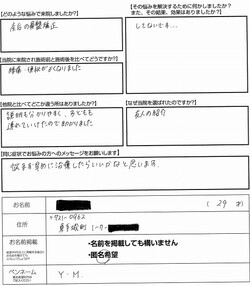 【どのような悩みで来院しましたか？】
産后の骨盤矯正
【その悩みを解決するために何かしましたか？
また、その結果、効果はありましたか？】
していないです…
【当院に来院され施術前と施術後を比べてどうですか？】
腰痛・肩がよくなりました
【他院と比べてどこか違う所はありましたか？】
説明も分かりやすく、子どもも
連れていけたので助かりました
【なぜ当院を選ばれたのですか？】
友人の紹介
【同じ症状でお悩みの方へのメッセージをお願いします】
悩まず早めに治療したらいいかなと思います。
お名前
(29才)
住所
〒921-0962
お名前掲載
・名前を掲載しても構いません
・匿名希望
ペンネーム
Y・M